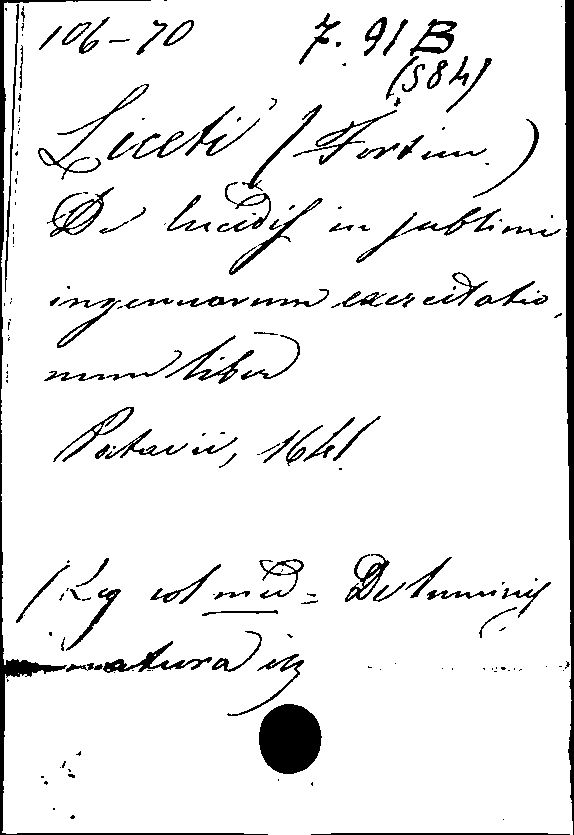 106-70 7. 91 B
(584)
Liceti (Fortun.)
De lucidis in sublimi
ingenuorum exercitatio
num liber
Patavii, 1641
(Leg est med = De luminis
natura etc